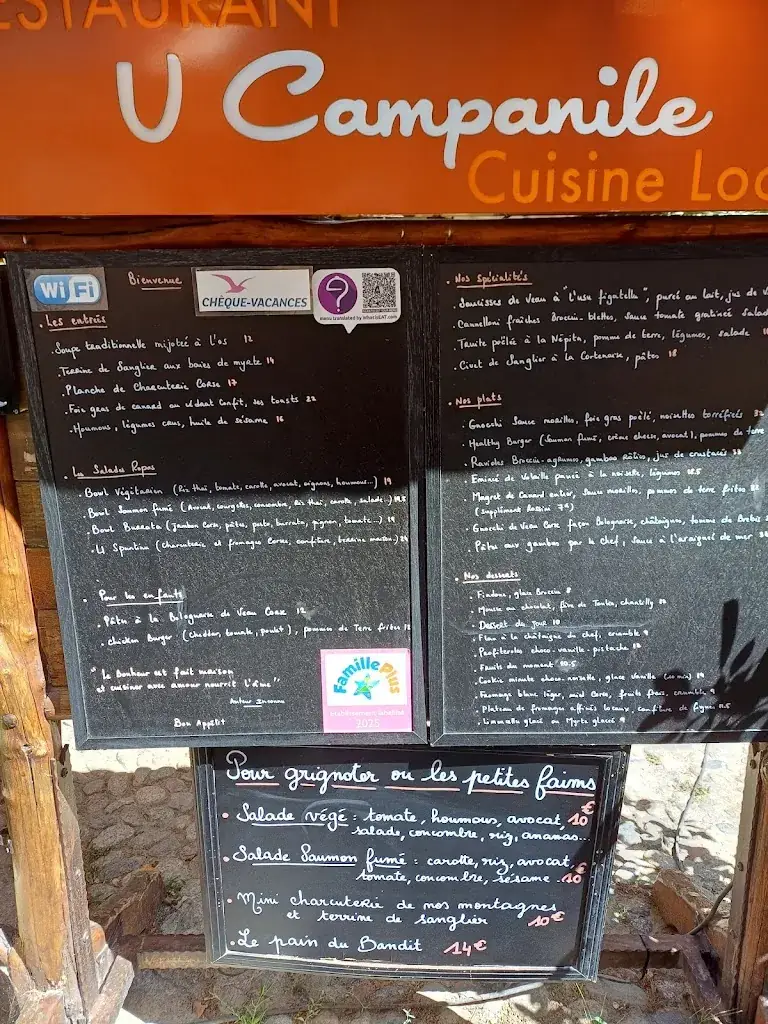 RESTAURANT
U Campanile
Cuisine Loc
WiFi
Bienvenue
CHÈQUE-VACANCES
menu translated by
. Les entrées
. Soupe traditionnelle mijotée à l'os 12
. Terrine de Sanglier aux baies de myrte 14
. Planche de Charcuterie Corse 17
. Foie gras de canard au cédrat confit, ses toasts 22
. Houmous, légumes crus, huile de sésame 16
. Les Salades Repas
. Bowl Végétarien (Riz thaï, tomate, carotte, avocat, oignons, houmous...) 19
. Bowl Saumon fumé (Avocat, courgettes, concombre, Riz thaï, carotte, salade...) 19.5
. Bowl Burrata (Jambon Corse, pâtes, pesto, burrata, pignon, tomate...) 19
. U Spuntinu (charcuterie et fromages Corses, confiture, terrine maison)
. Pour les enfants
. Pâtes à la Bolognaise de Veau Corse 12
. chicken Burger (Cheddar, tomate, poulet), pommes de Terre frites 12
"Le Bonheur est fait maison
et cuisiner avec amour nourrit l'âme"
Auteur Inconnu
Bon Appétit
Famille Plus
2025
. Nos spécialités
. Saucisses de Veau à "l'usu figatellu", purée au lait, jus de
. Cannelloni fraîches Brocciu-blettes, sauce tomate gratinée salad
. Truite poêlée à la Népita, pomme de terre, légumes, salade
. Civet de Sanglier à la Cortenaise, pâtes 18
. Nos plats
. Gnocchi Sauce morilles, foie gras poêlé, noisettes torréfiées
. Healthy Burger (Saumon fumé, crème cheese, avocat), pommes de terre
. Ravioles Brocciu-agrumes, gambas rôties, jus de crustacés
. Emincé de Volaille panée à la noisette, légumes
. Magret de Canard entier, sauce morilles, pommes de terre frites
(Supplément Rossini 7€)
. Gnocchi de Veau Corse façon Bolognaise, châtaignes, tomme de Brebis
. Pâtes aux gambas par le chef, sauce à l'araignée de mer
. Nos desserts
. Fiadone, glace Brocciu 8
. Mousse au chocolat, fève de Tonka, chantilly 10
. Dessert du jour 10
. Flan à la châtaigne du chef, crumble 9
. Profiteroles choco-vanille-pistache 10
. Fruits du moment 10.5
. Cookie minute choco-noisette, glace vanille (10 min) 14
. Fromage blanc léger, miel Corse, fruits frais, crumble 9
. Plateau de fromages affinés locaux, confiture de figues 11.5
. Limoncello glacé ou Myrte glacée 9
Pour grignoter ou les petites faims
. Salade végé : tomate, houmous, avocat, 10€
salade, concombre, riz, ananas...
. Salade Saumon fumé : carotte, riz, avocat,
tomate, concombre, sésame...10€
. Mini charcuterie de nos montagnes
et terrine de sanglier 10€
. Le pain du Bandit 14€